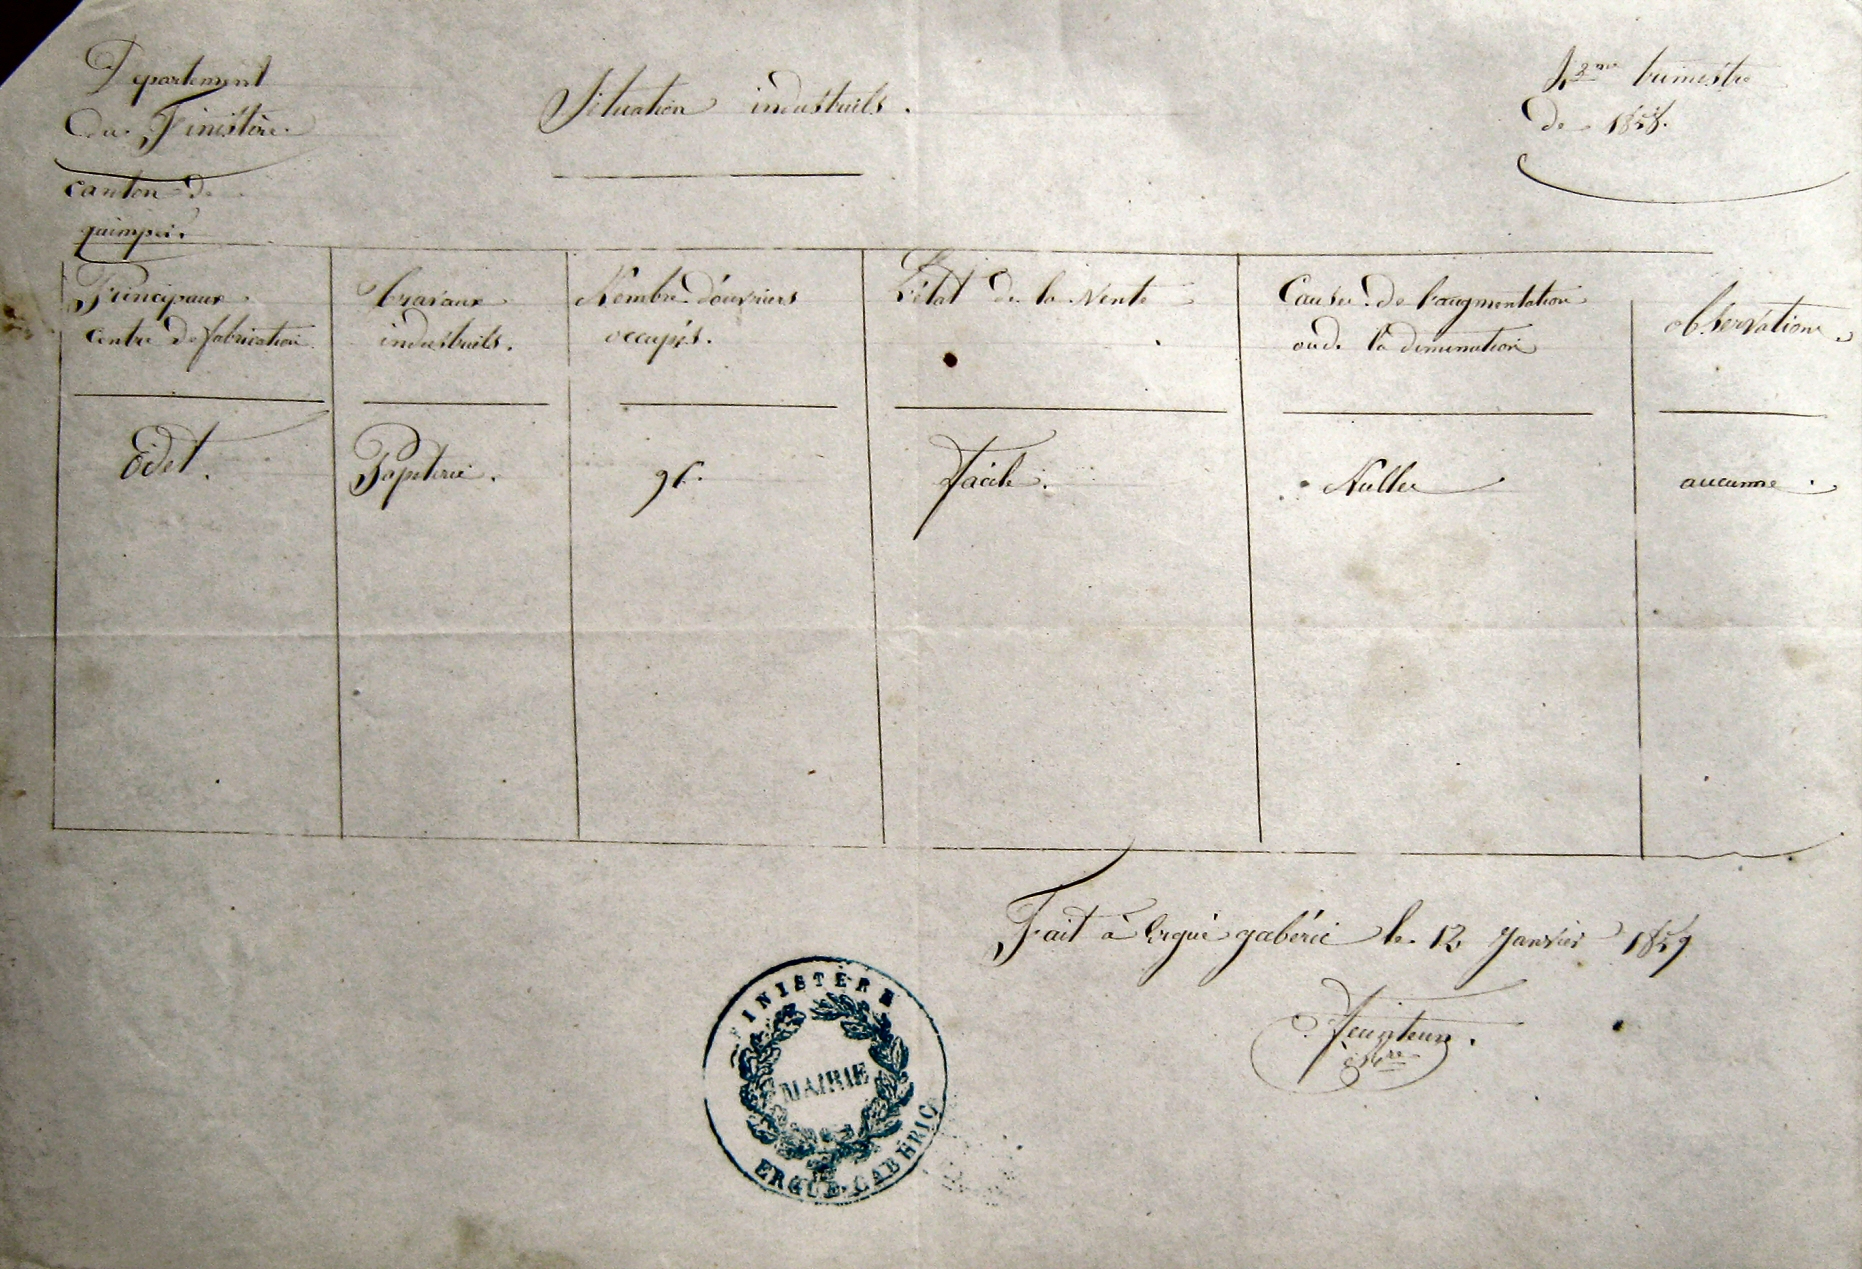 Département
du Finistère.
Situation industriels.
trimestre
de 1858.
canton de
quimper.
Principaux
centre de fabrication.
travaux
industriels.
Nombre d'ouvriers
occupés.
L'état de la Vente
Causes de l'augmentation
ou de la diminution
observations.
Odet.
Papeterie.
Facile.
Nulles
aucunne.
Fait à Ergué gabéric le 12 Janvier 1859
FINISTÈRE
MAIRIE
ERGUÉ-GABÉRIC